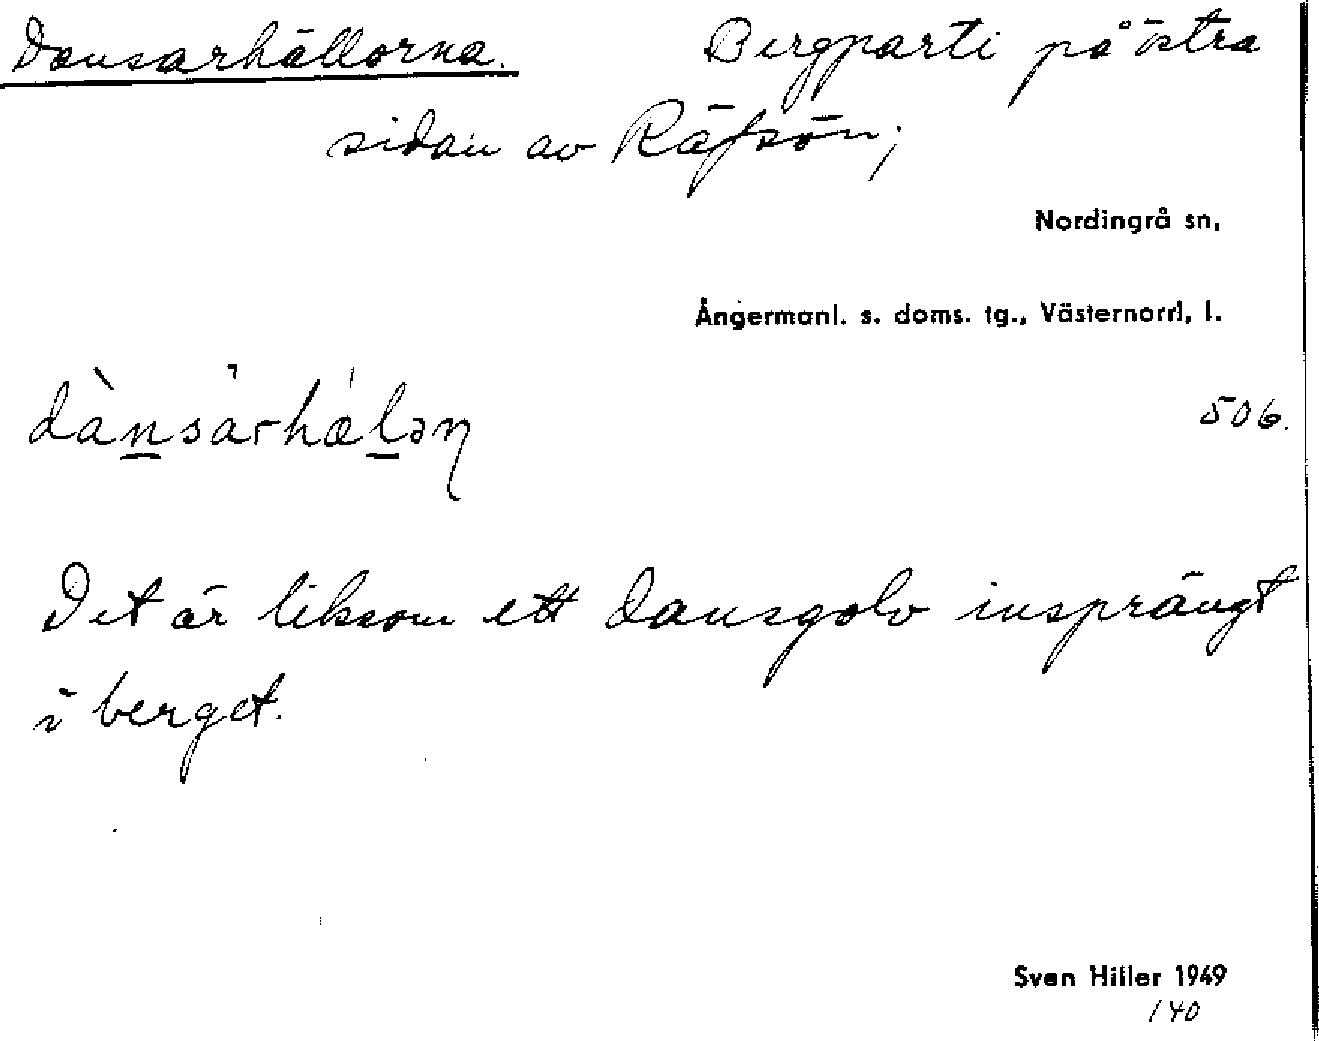 Dansarhällorna. Bergparti på östra
sidan av Räfsön;
Nordingrå sn,
Ångermanl. s. doms. tg., Västernorrl. l.
dànsarhæ̀lən 506.
Det är liksom ett dansgolv insprängt
i berget.
Sven Hiller 1949
140